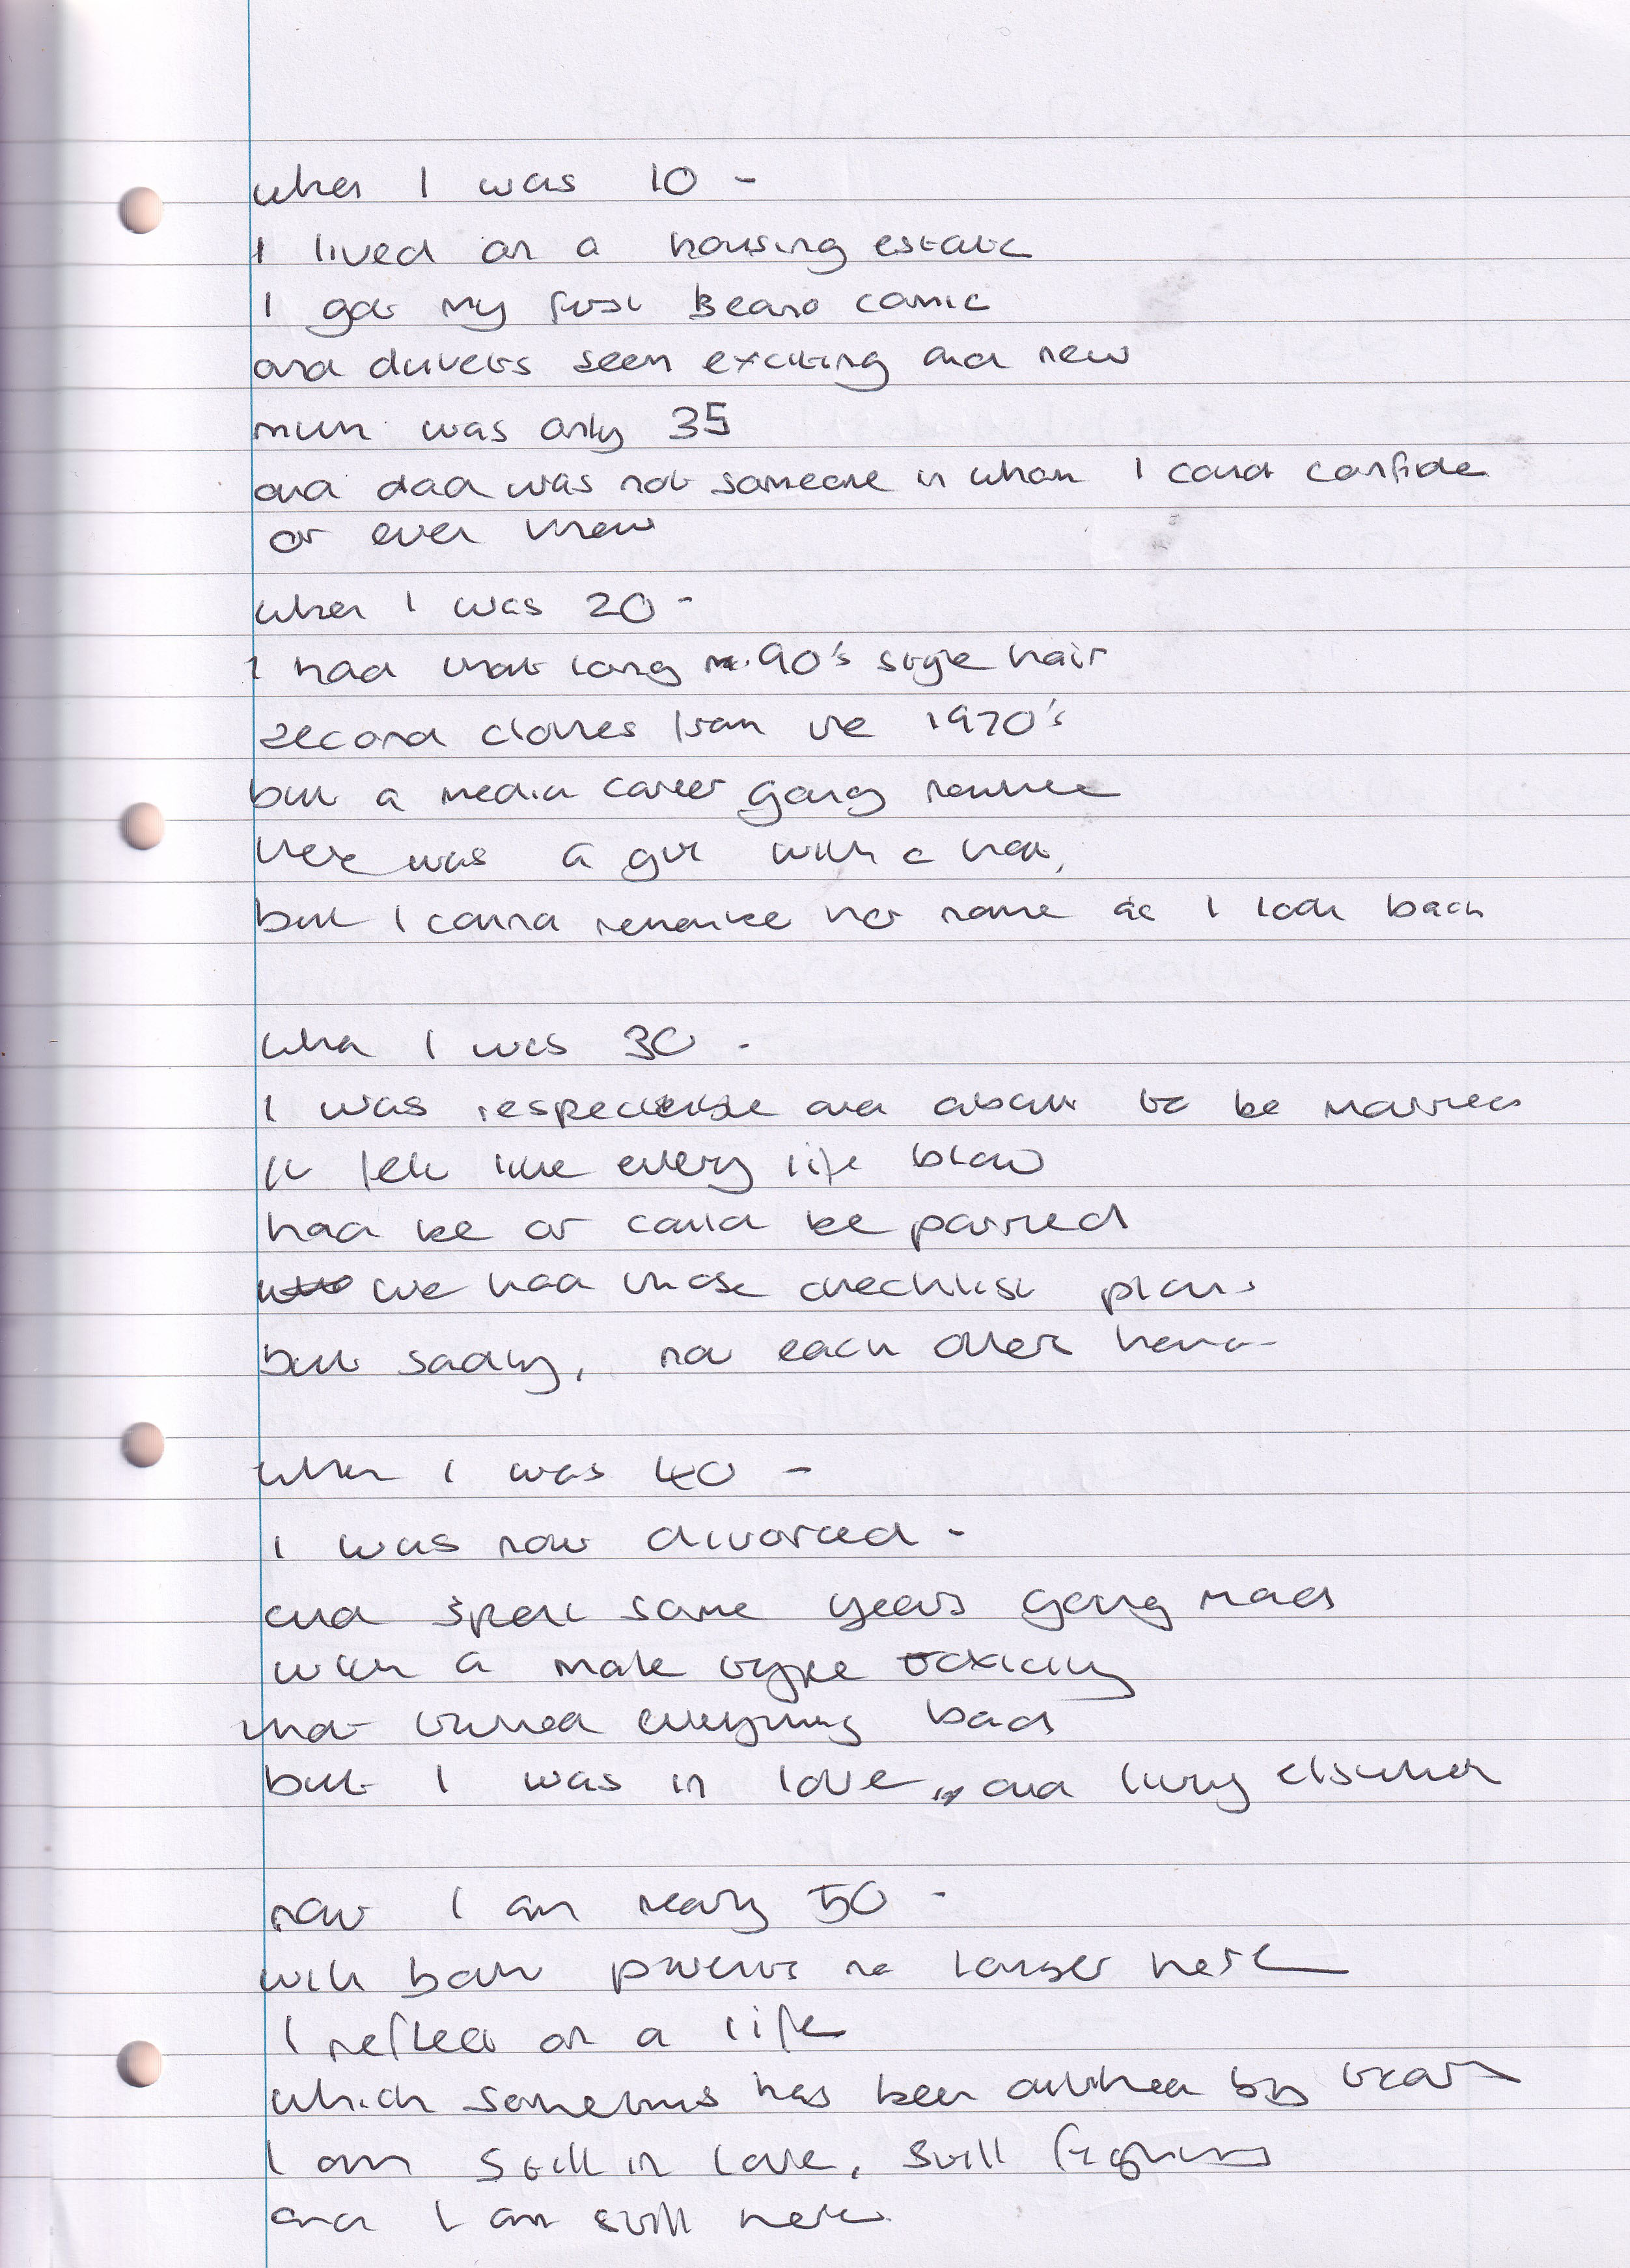 when I was 10 -
I lived on a housing estate
I got my first Beano comic
and seem exciting and new
mum was only 35
and dad was not someone in whom I could confide
or even knew
when I was 20 -
I had that long 90's style hair
second clothes from the 1970's
but a media career going
there was a girl with a
but I cannot remember her name as I look back
when I was 30 -
I was respectable and about to be married
it felt like every life blow
had be or could be parried
we had those checklist plans
but sadly, not each other
when I was 40 -
I was now divorced -
and spent some years going mad
with a male type toxicity
that turned everything bad
but I was in love, and living elsewhere
now I am nearly 50 -
with both parents no longer here
I reflect on a life
which sometimes has been by
I am still in love, still fighting
and I am still here.